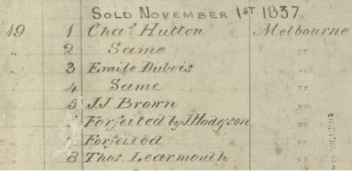 SOLD NOVEMBER 1ST 1837
19 1 Chas. Hutton Melbourne
" 2 Same "
" 3 Emile Dubois "
" 4 Same "
" 5 J.J. Brown "
" Forfeited by J Hodgson "
" Forfeited "
" 8 Thos. Learmonth "